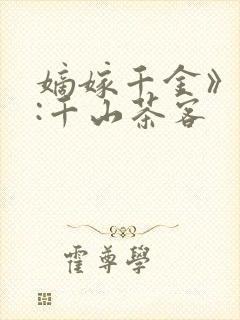 嫡嫁千金》
:千山茶客
霍尊學